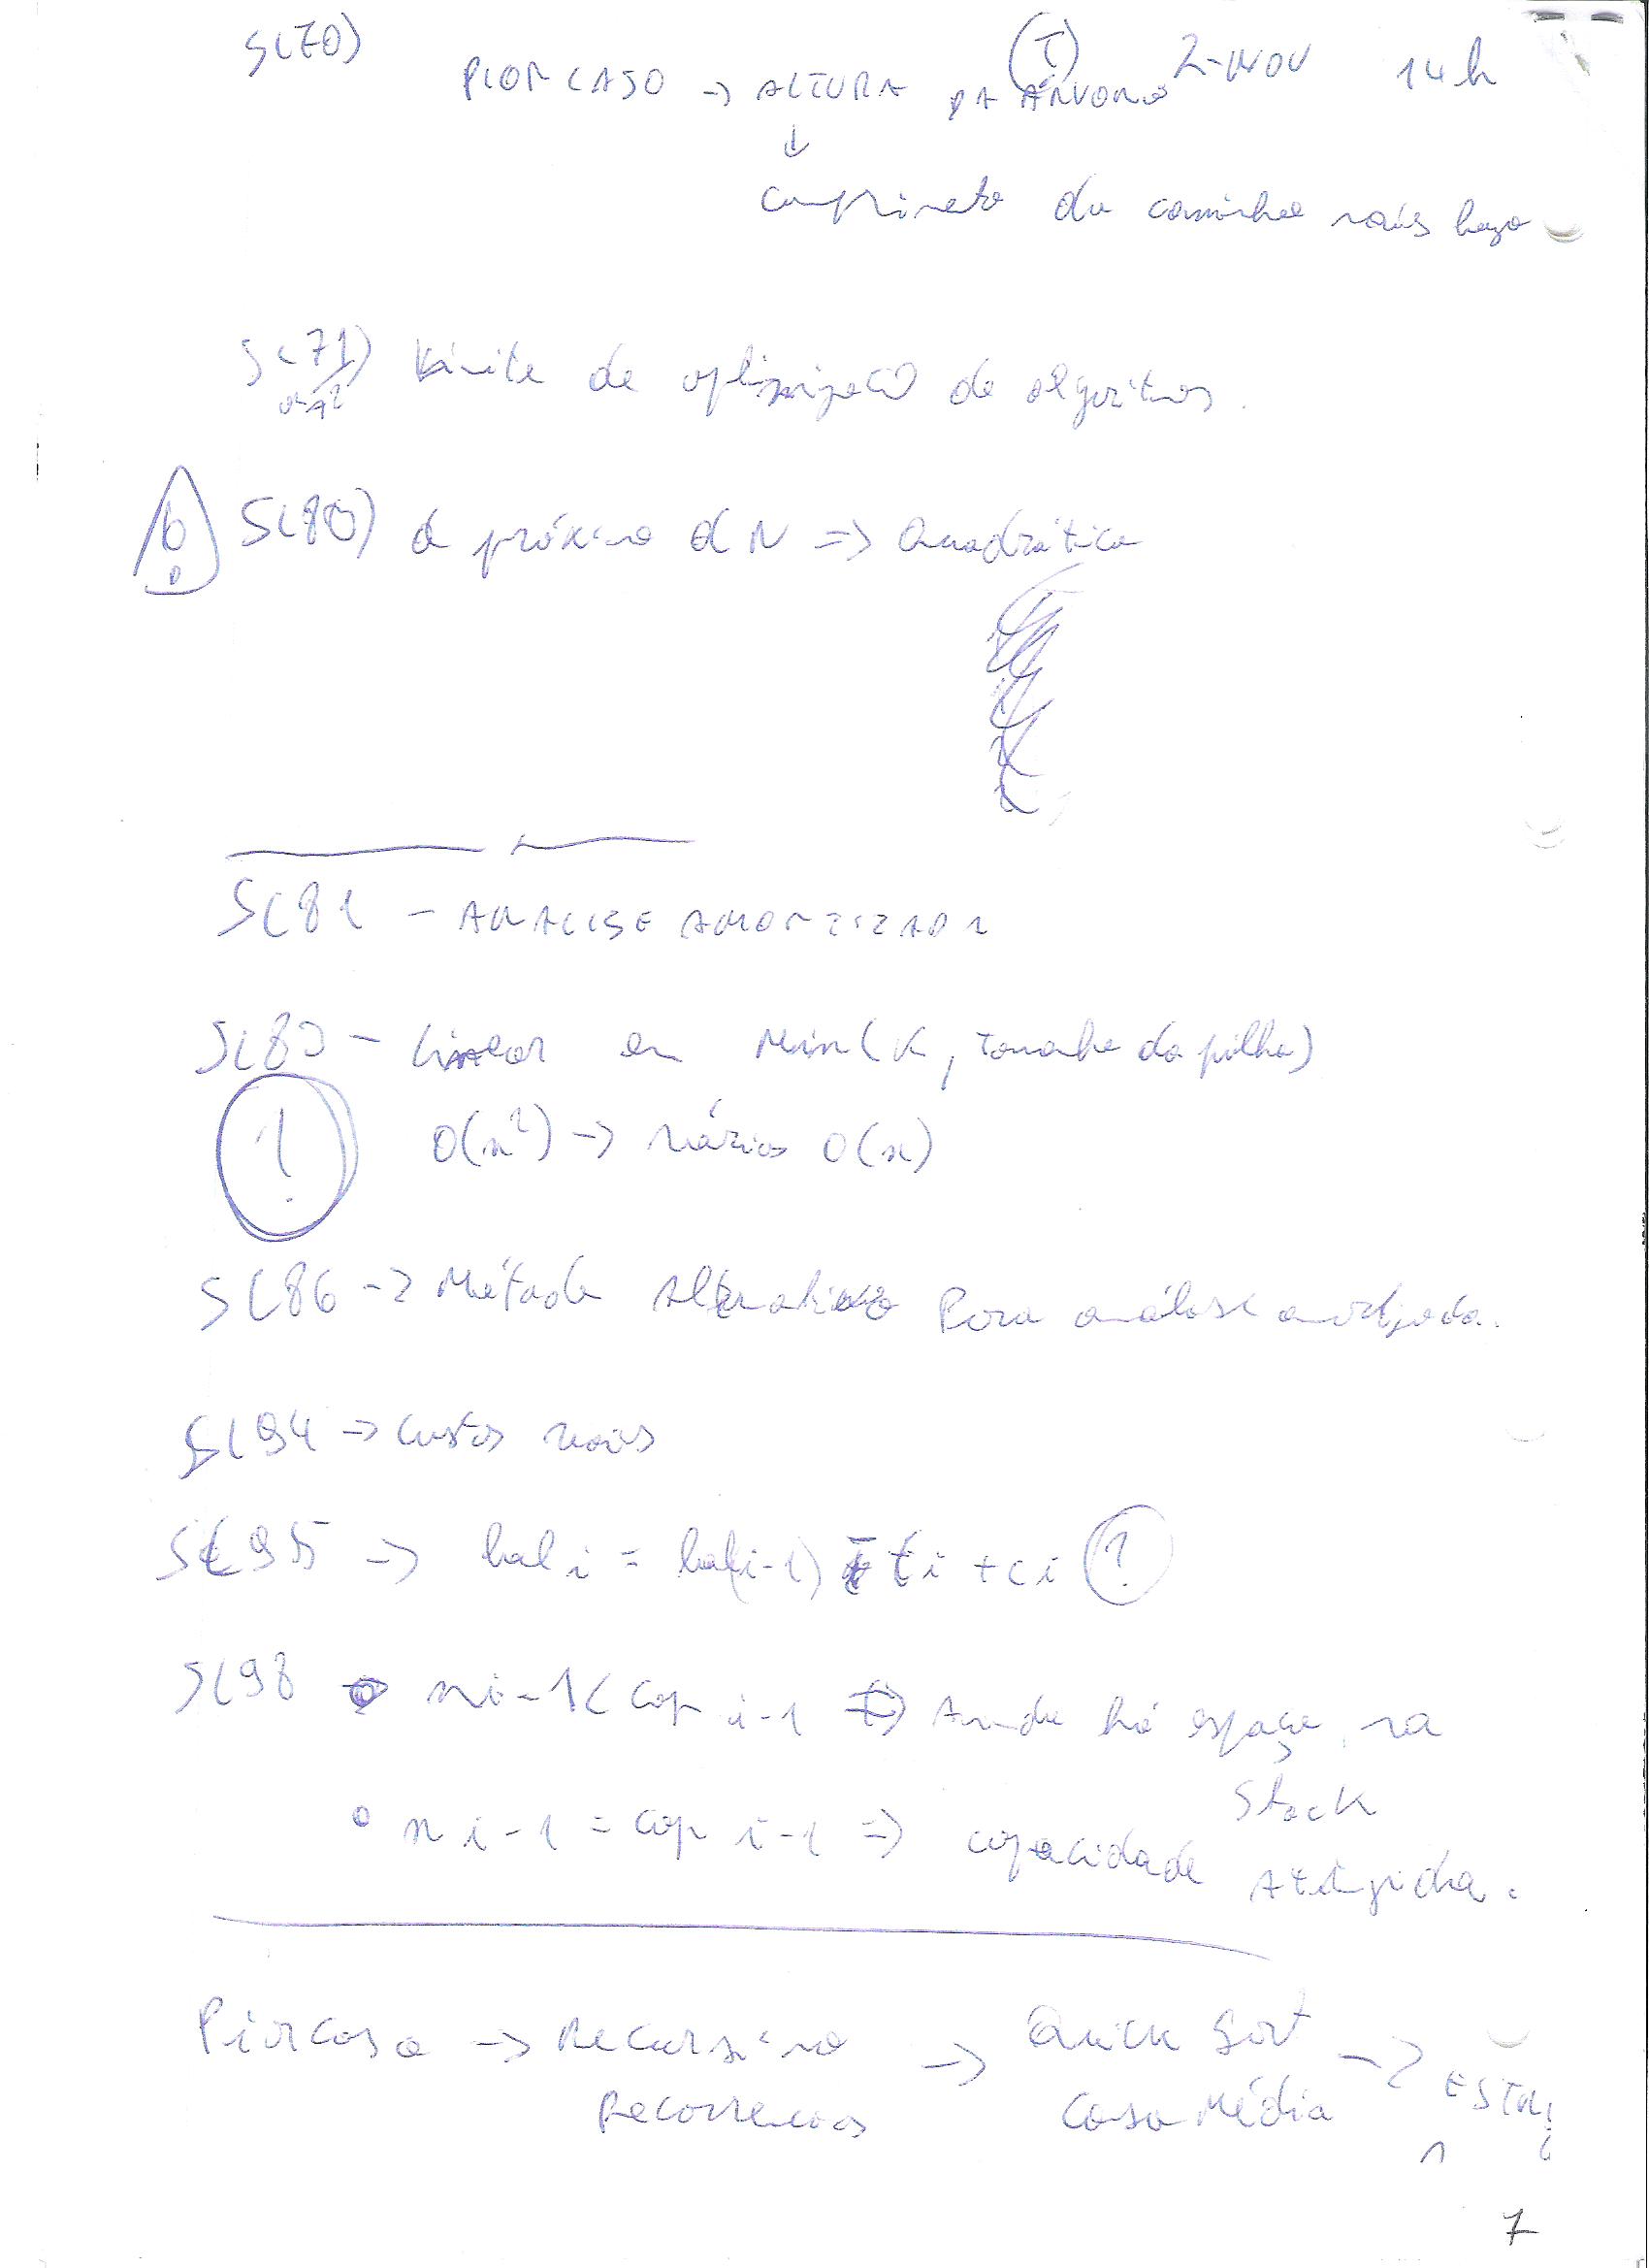 S(70) (T) 2-NOV 14h
PIOR CASO -> ALTURA DA ÁRVORE
↓
comprimento do caminho mais longo
S(71) Limite de optimização de algoritmos.
S(80) d próximo d N => Quadrática
SL81 - ANALISE AMORTIZADA
SL83 - Linear em Min(K, Tamanho da pilha)
! O(n²) -> vários O(n)
SL86 -> Método Alternativo Para análise amortizada.
SL94 -> custos reais
SL95 -> bal i = bal(i-1) ti + ci ?
SL98 ni-1 < cap i-1 => Ainda há espaço na
Stack
• n i-1 = cap i-1 => capacidade Atingida.
Pior caso -> Recursivo -> Quick Sort ->
Recorrencias Caso Médio
7